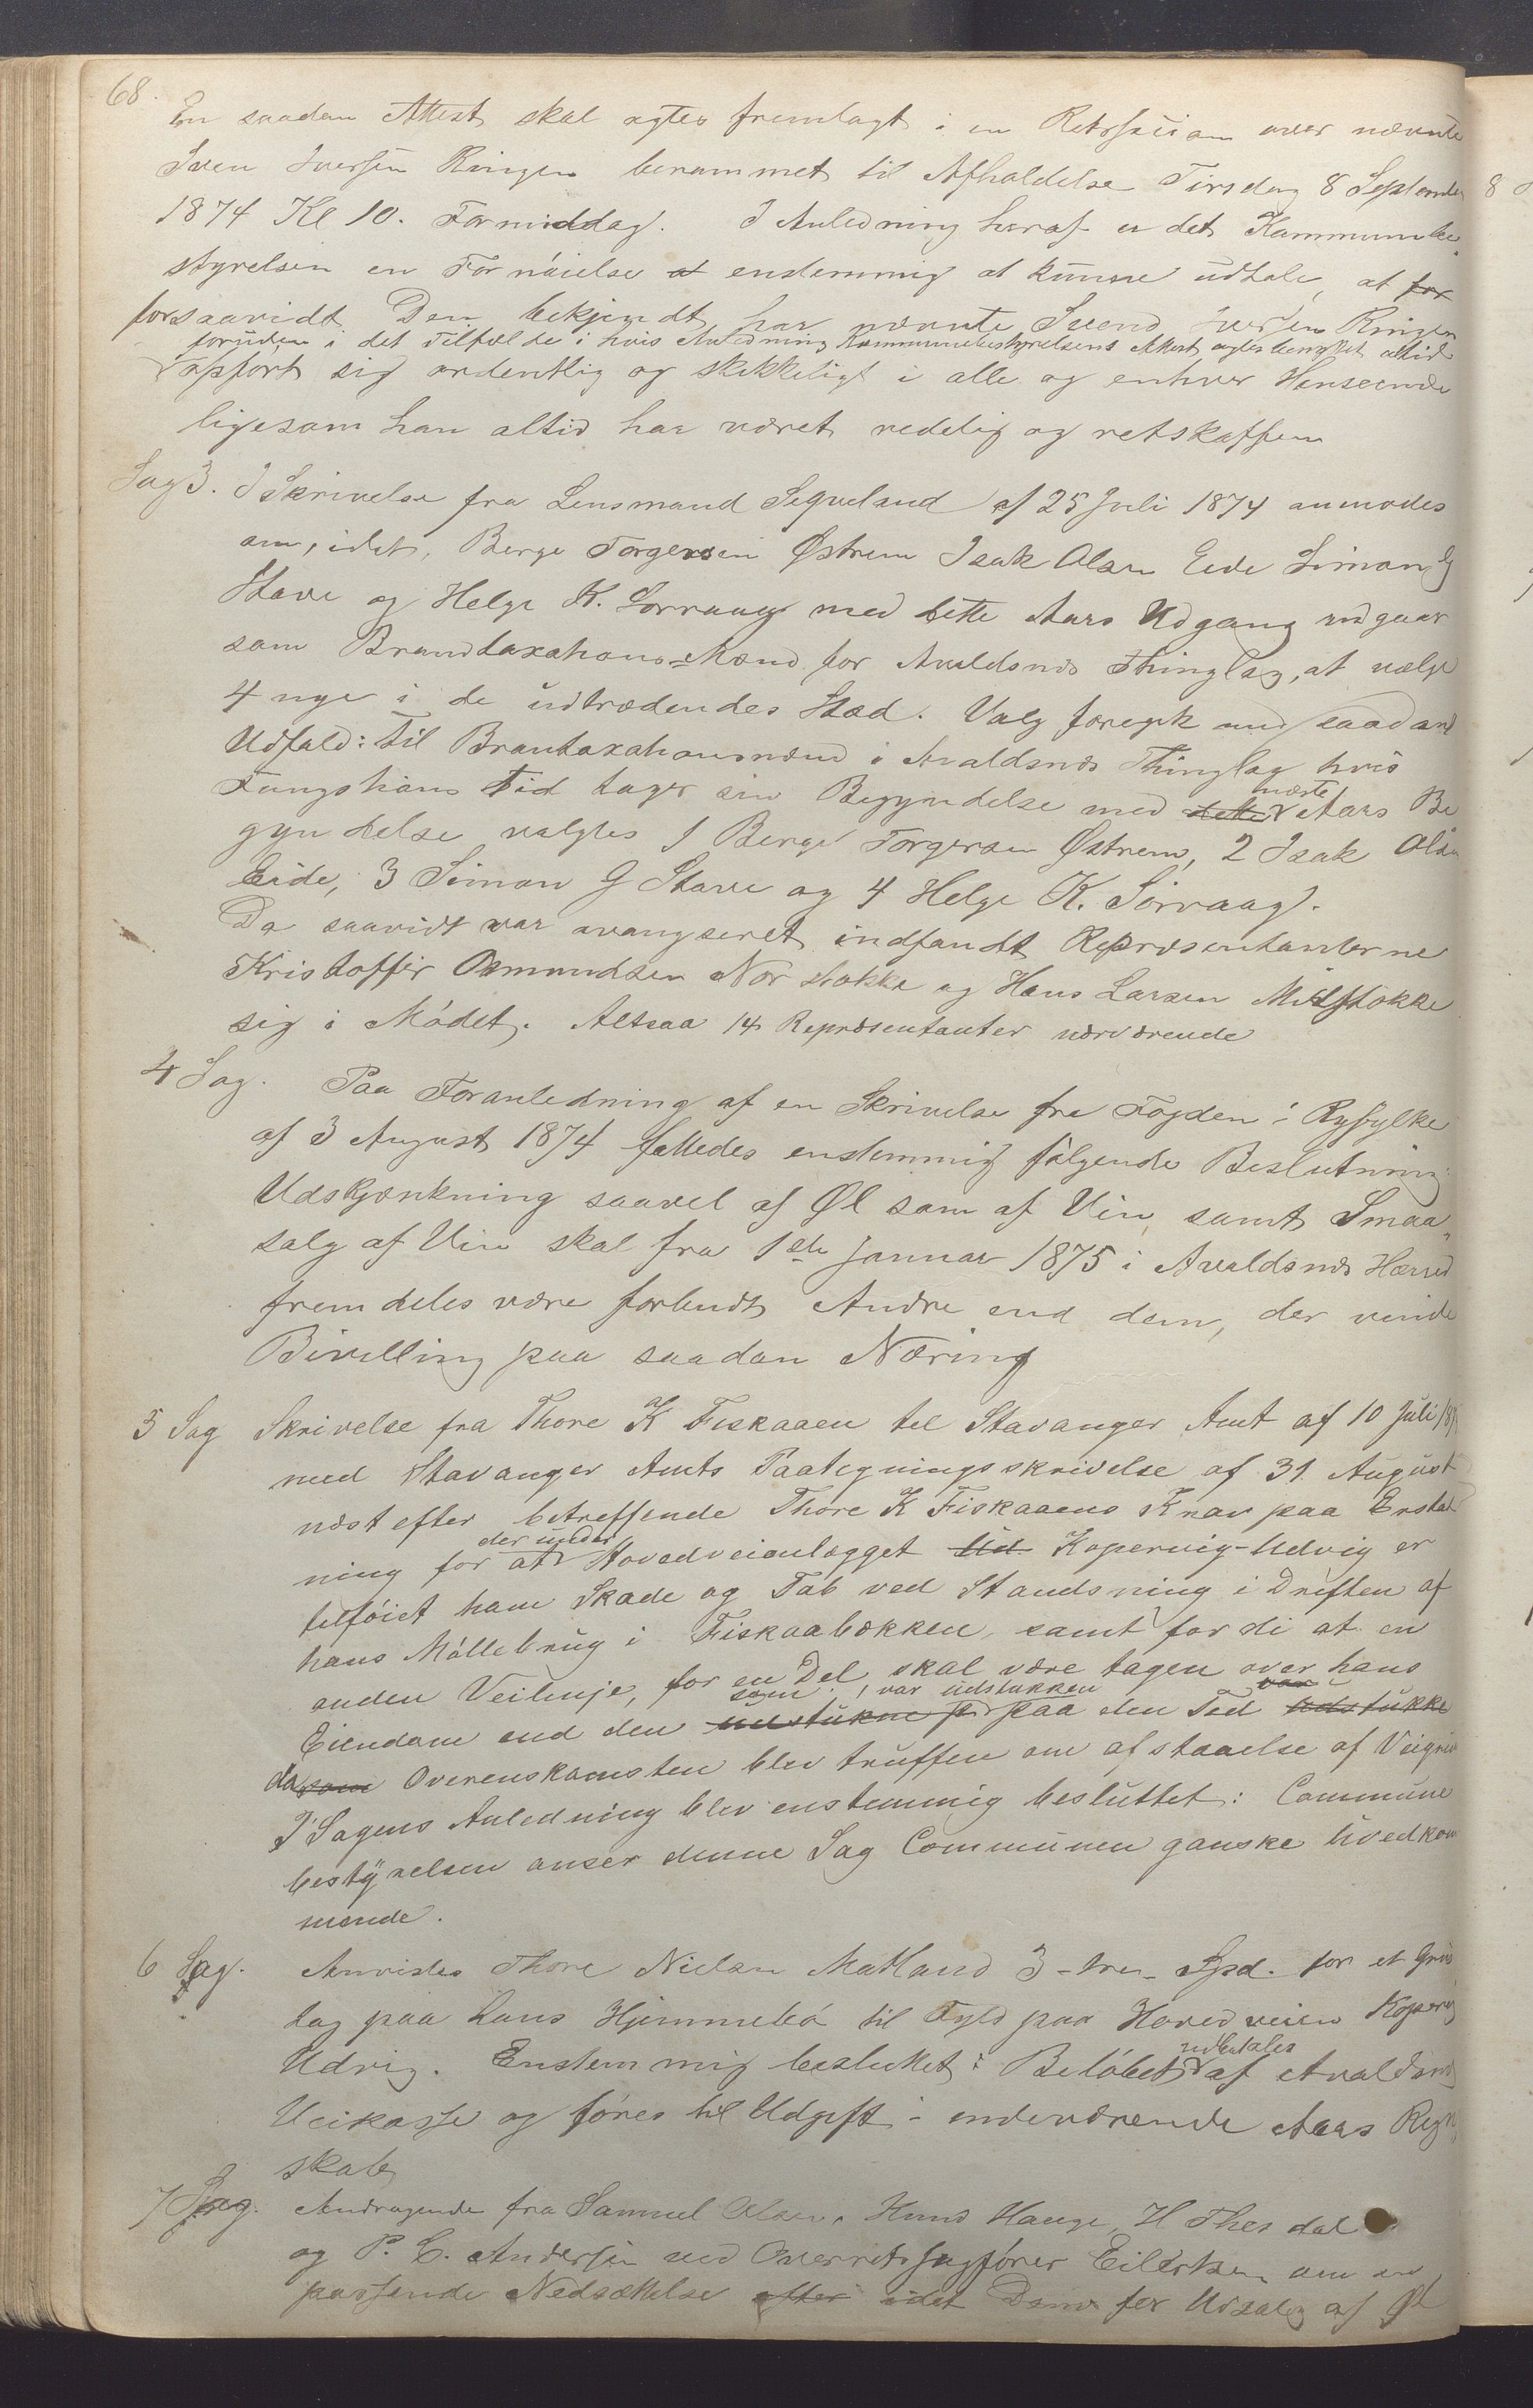 68.
En saadan Attest skal agtes fremlagt i en Retssession over nævnte
Sven Iversen Ringen berammet til Afholdelse Tirsdag 8 September
1874 Kl 10. Formiddag. I Anledning heraf er det Kommunebe-
styrelsen en Fornöielse at enstemmig at kunne udtale, at for
forsaavidt Den bekjendt har nævnte Svend Iversen Ringen
foruden i det Tilfælde i hvis Anledning Kommunebestyrelsens Attest agtes benyttet altid
opfört sig ordentlig og skikkeligt i alle og enhver Henseende
ligesom han altid har været redelig og retskaffen
Sag 3. I Skrivelse fra Lensmand Sequeland af 25 Juli 1874 anmodes
om, idet, Berge Torgersen Østrem Isak Olsen Eide Simon G
Stave og Helge K. Sörvaag med dette Aars Udgang udgaar
som Brandtaxations-Mænd for Avaldsnæs Thinglag, at vælge
4 nye i de udtrædendes Sted. Valg foregik med saadant
Udfald: Til Brantaxationsmænd i Avaldsnæs Thinglag hvis
Fungtions Tid tager sin Begyndelse med dette næste Aars Be
gyndelse valgtes 1 Berge Torgersen Østrem, 2 Isak Olsen
Eide, 3 Simon G Stave og 4 Helge K. Sörvaag.
Da saavidt var avangseret indfandt Repræsentanterne
Kristoffer Omundsen Nor Stokke og Hans Larsen Midstokke
sig i Mödet. Altsaa 14 Repræsentanter nærværende
4 Sag. Paa Foranledning af en Skrivelse fra Fogden i Ryfylke
af 3 August 1874 fattedes enstemmig fölgende Beslutning:
Udskjænkning saavel af Øl som af Vin, samt Smaa-
salg af Vin skal fra 1ste Januar 1875 i Avaldsnæs Herred
fremdeles være forbudt Andre end dem, der vinde
Bevilling paa saadan Næring
5 Sag Skrivelse fra Thore K Fiskaaen til Stavanger Amt af 10 Juli
med Stavanger Amts Paategningsskrivelse af 31. August
næst efter betreffende Thore K Fiskaaens Krav paa Erstat-
ning for at der under Hovedveianlægget Ud Kopervig-Udvig er
tilföiet ham Skade og Tab ved Standsning i Driften af
hans Möllebrug i Fiskaabækken, samt fordi at en
anden Veilinje, for en Del, skal være tagen over hans
Eiendom end den udstukne som var udstukken paa den Tid var udstukke
da som Overenskomsten blev truffen om afstaaelse af Veigrund
I Sagens Anledning blev enstemmig besluttet: Commune
bestyrelsen anser denne Sag Communen ganske uvedkom
mende.
6 Sag. Anvistes Thore Nielsen Matland 3 - tre - Spd. for et Grus
tag paa hans Hjemmebö til Fyld paa Hovedveien Kopervig
Udvig. Enstemmig besluttet: Belöbet udbetales af Avaldsnæs
Veikasse og föres til Udgift i indeværende Aars Regn-
skab
7 Sag. Andragende fra Samuel Olsen, Hauge, H Thesdal
og P. C. Andersen ved Overretssagförer Eilertsen om en
passende Nedsættelse efter idet for Udsalg af Øl